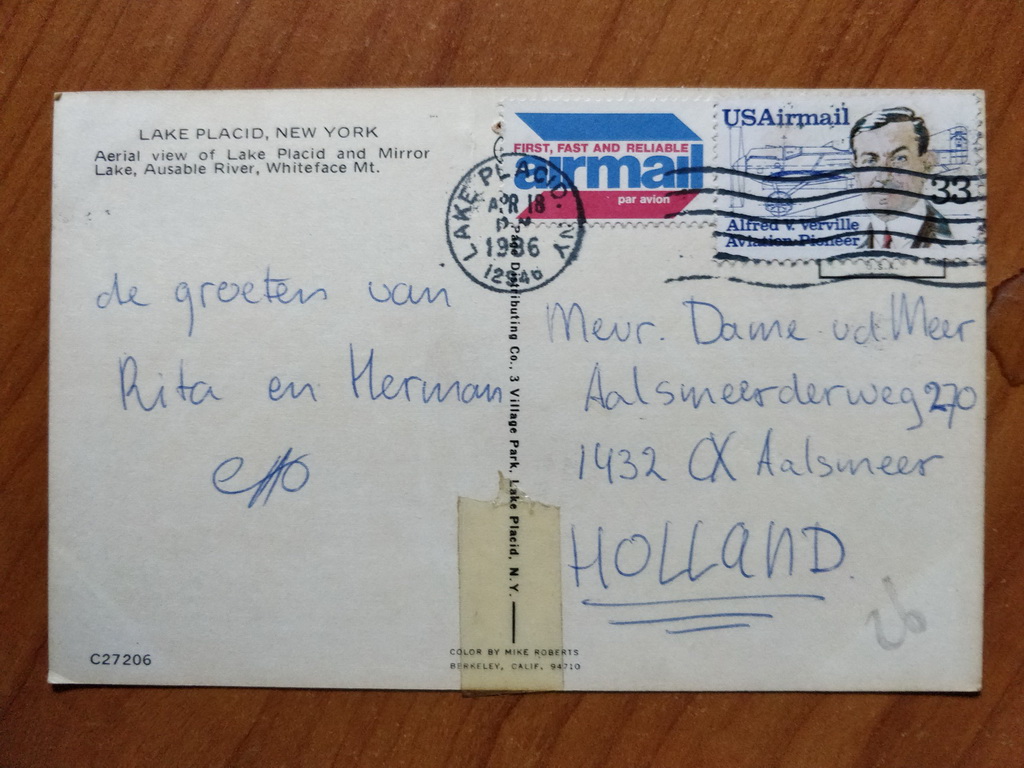 LAKE PLACID, NEW YORK
Aerial view of Lake Placid and Mirror
Lake, Ausable River, Whiteface Mt.
FIRST, FAST AND RELIABLE
airmail
par avion
USAirmail
33
Alfred V. Verville
Aviation Pioneer
LAKE PLACID, NY
APR 18
PM
1986
12946
de groeten van
Rita en Herman
Mevr. Dame v.d. Meer
Aalsmeerderweg 270
1432 CX Aalsmeer
HOLLAND.
Distributing Co., 3 Village Park, Lake Placid, N.Y.
COLOR BY MIKE ROBERTS
BERKELEY, CALIF. 94710
C27206
26